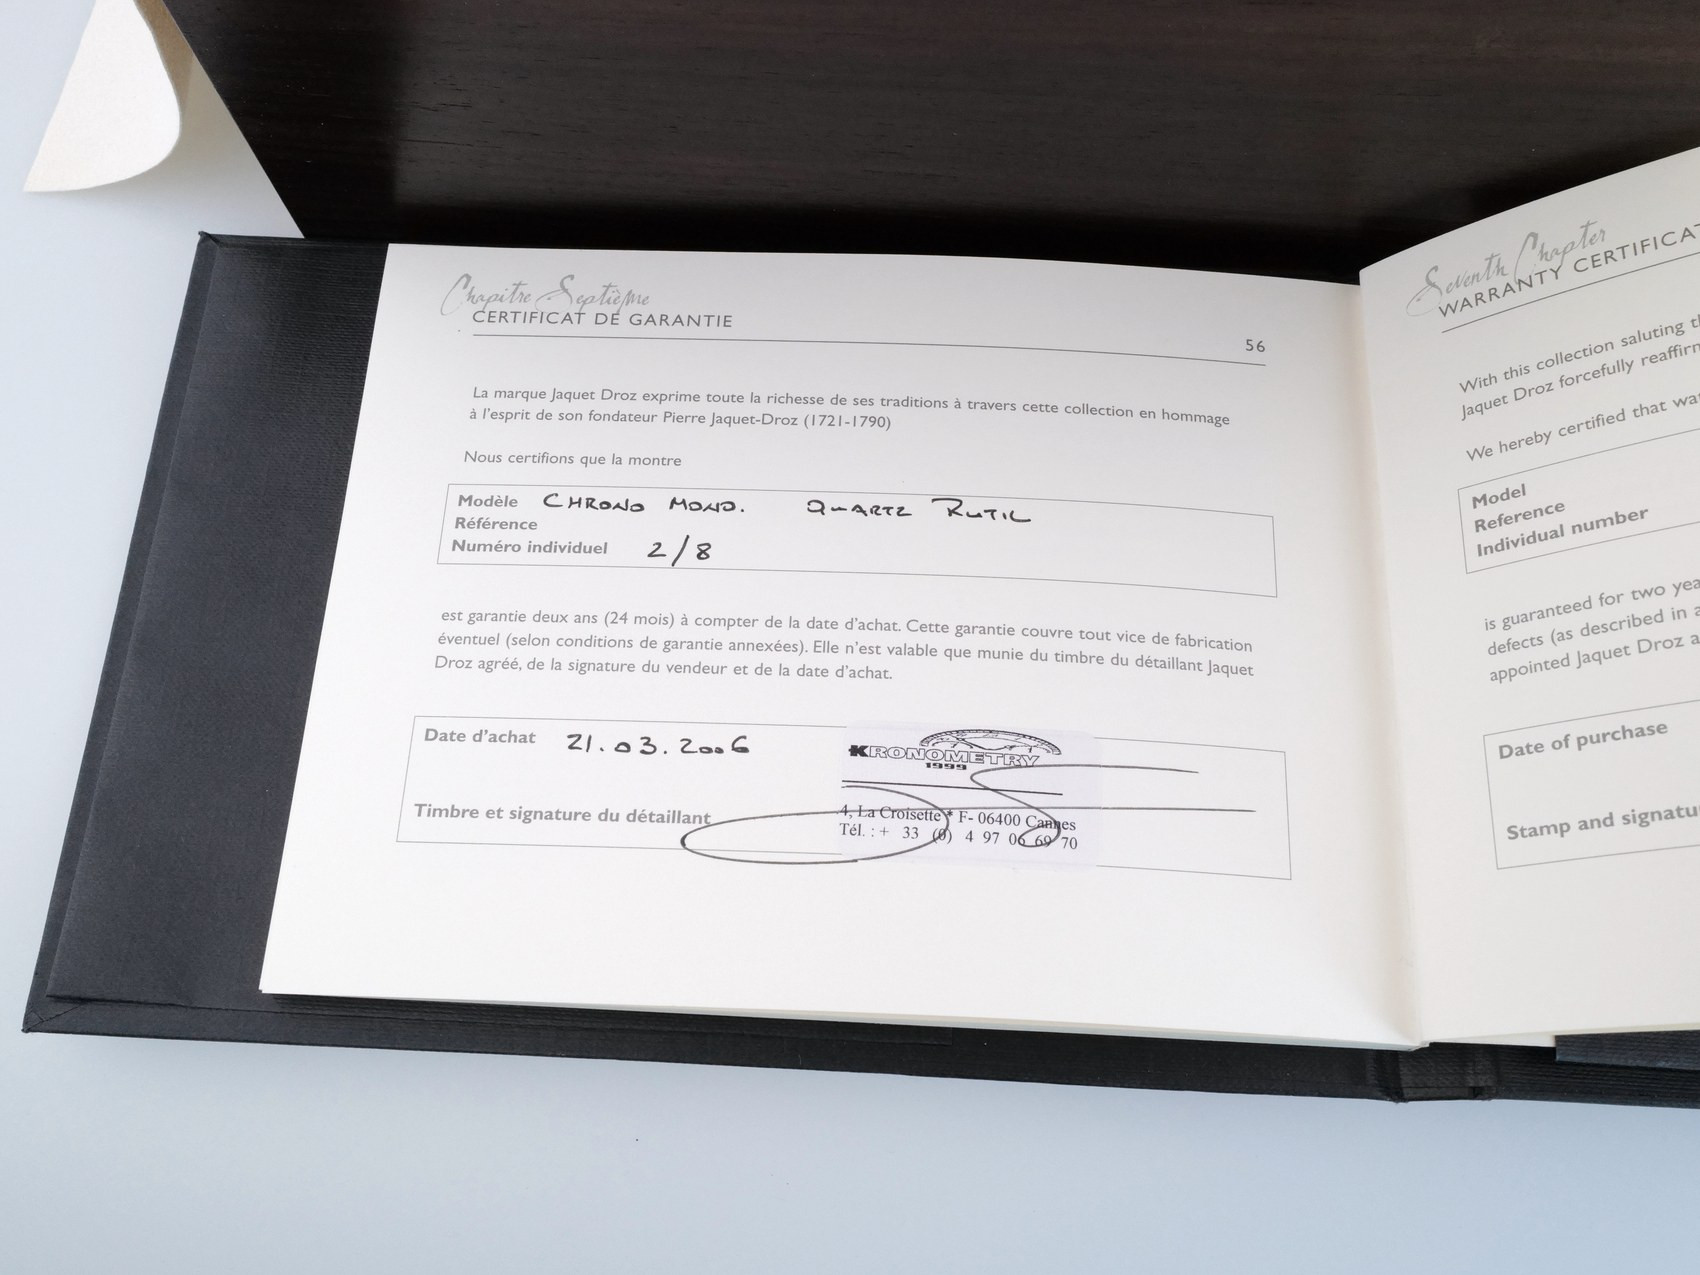 Chapitre Septième
CERTIFICAT DE GARANTIE
56
La marque Jaquet Droz exprime toute la richesse de ses traditions à travers cette collection en hommage
à l'esprit de son fondateur Pierre Jaquet-Droz (1721-1790)
Nous certifions que la montre
Modèle CHRONO MONO. QUARTZ RUTIL
Référence
Numéro individuel 2/8
est garantie deux ans (24 mois) à compter de la date d'achat. Cette garantie couvre tout vice de fabrication
éventuel (selon conditions de garantie annexées). Elle n'est valable que munie du timbre du détaillant Jaquet
Droz agréé, de la signature du vendeur et de la date d'achat.
Date d'achat 21.03.2006
KRONOMETRY
1999
Timbre et signature du détaillant
4, La Croisette * F- 06400 Cannes
Tél. : + 33 (0) 4 97 06 69 70
Seventh Chapter
WARRANTY CERTIFICAT
With this collection saluting th
Jaquet Droz forcefully reaffirm
We hereby certified that wat
Model
Reference
Individual number
is guaranteed for two yea
defects (as described in a
appointed Jaquet Droz a
Date of purchase
Stamp and signatu